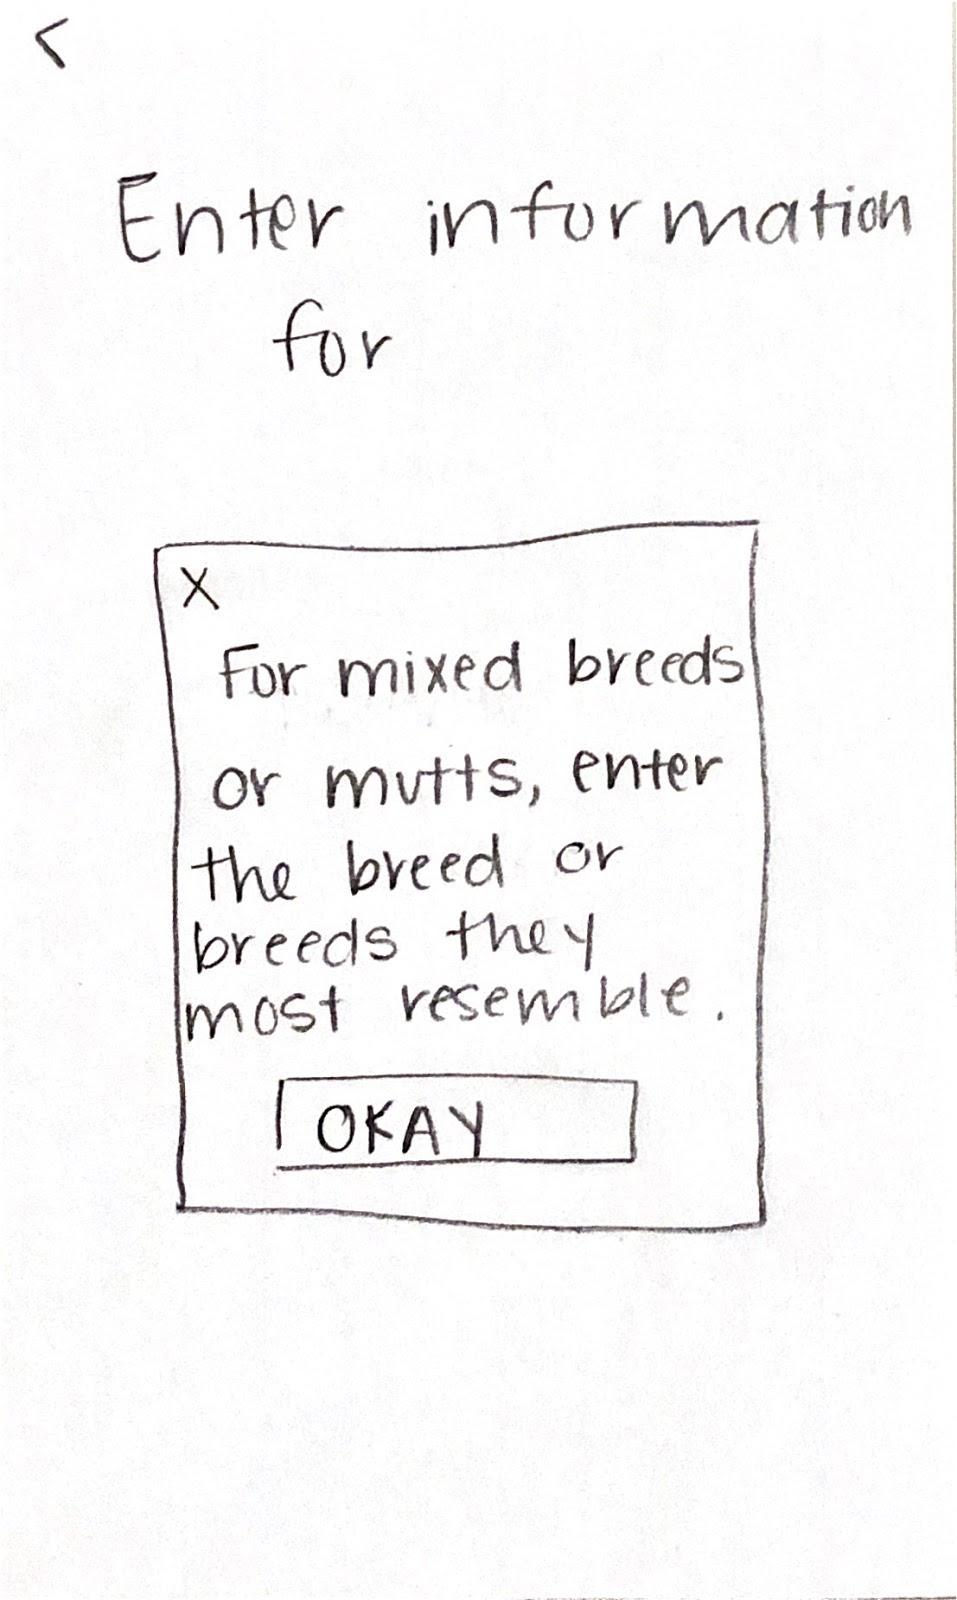 <
Enter information
for
X
For mixed breeds
or mutts, enter
the breed or
breeds they
most resemble.
OKAY